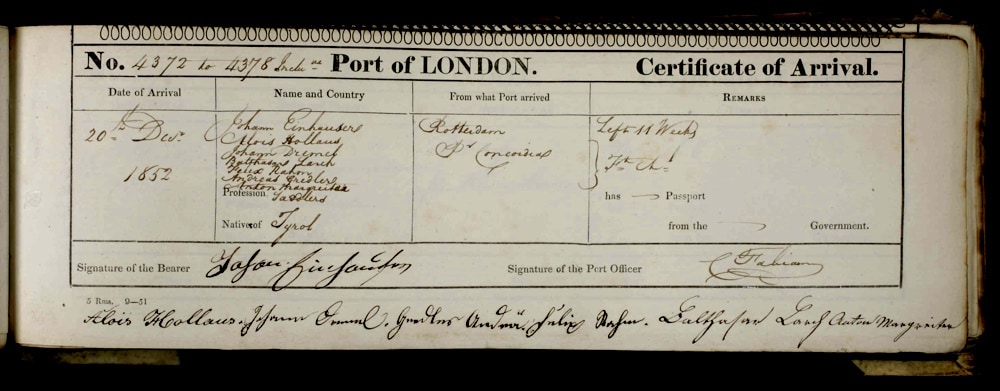 No. 4372 to 4378 Inclu.ve Port of LONDON. Certificate of Arrival.
Date of Arrival Name and Country From what Port arrived REMARKS
20th Decr. Johann Einhauser Rotterdam Left 11 Weeks
Alois Hollaus
Johann Dremel Pr Concordia
Balthasar Larch
1852 Felix Rahm
Andreas Gredler
Anton Margreiter
Profession Sadlers has Passport
Native of Tyrol from the Government.
Signature of the Bearer Johan Einhauser Signature of the Port Officer Fabian
5 Rms. 9—51
Alois Hollaus. Johann Dreml. Gredler Andrä. Felix Rahm. Balthasar Larch Anton Margreiter